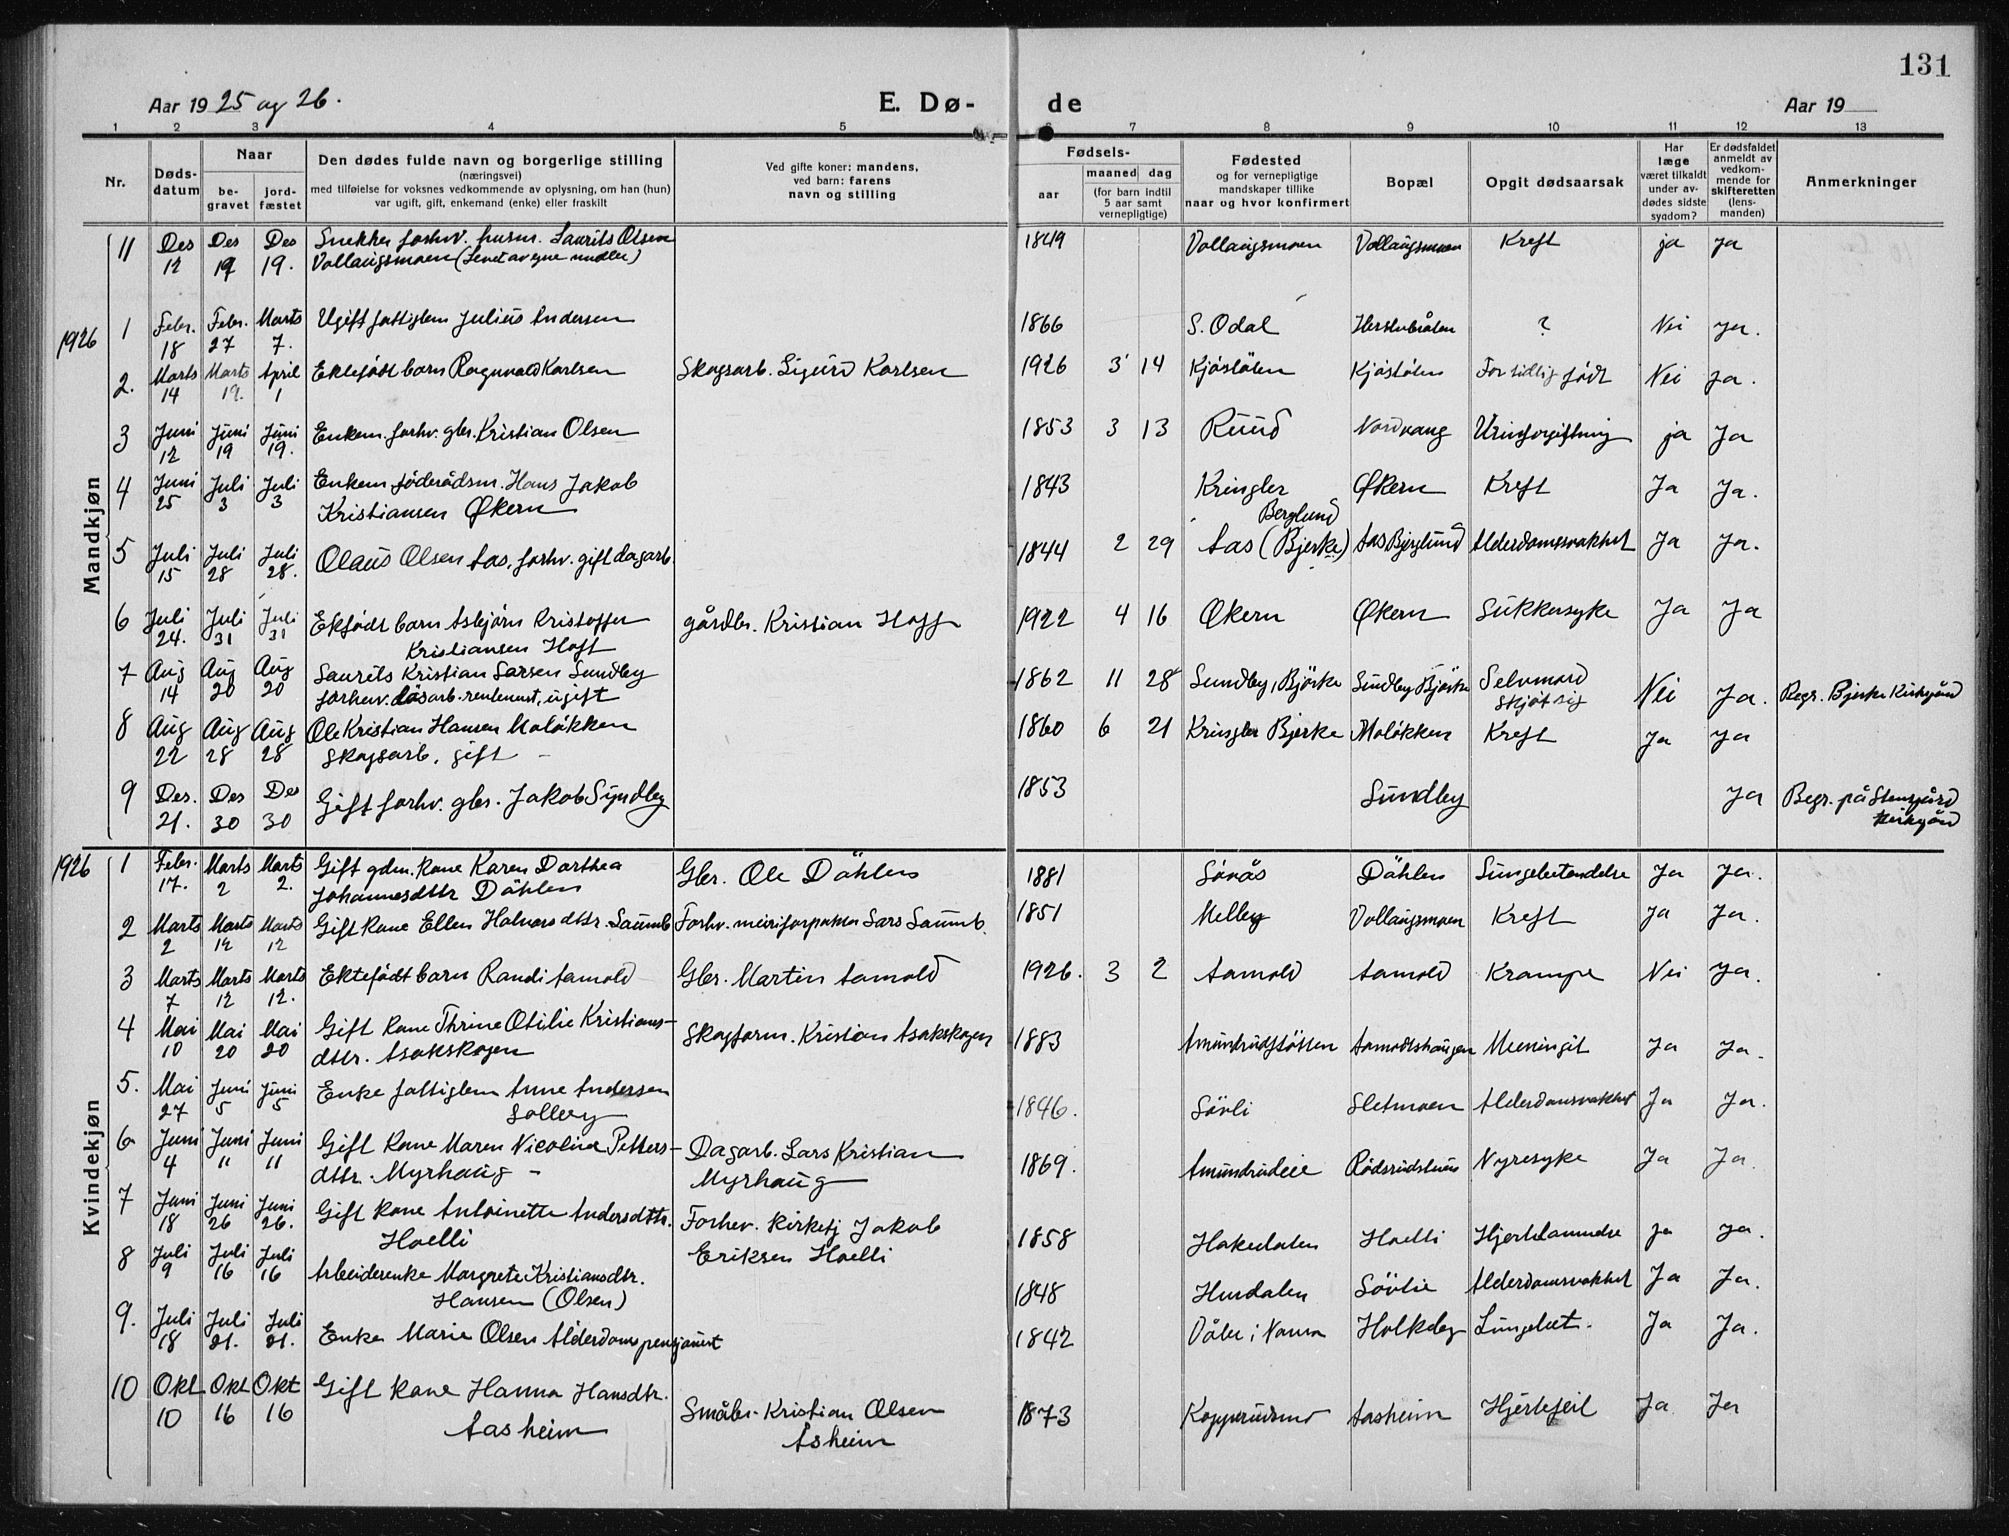 131
Aar 1925 og 26.
E. Dø-
de
Aar 19
1 2 3 4 5 6 7 8 9 10 11 12 13
Nr.
Døds-
datum
Naar
be-
gravet
jord-
fæstet
Den dødes fulde navn og borgerlige stilling
(næringsvei)
med tilføielse for voksnes vedkommende av oplysning, om han (hun)
var ugift, gift, enkemand (enke) eller fraskilt
Ved gifte koner: mandens,
ved barn: farens
navn og stilling
Fødsels-
aar
maaned dag
(for barn indtil
5 aar samt
vernepligtige)
Fødested
og for vernepligtige
mandskaper tillike
naar og hvor konfirmert
Bopæl
Opgit dødsaarsak
Har
læge
været tilkaldt
under av-
dødes sidste
sygdom?
Er dødsfaldet
anmeldt av
vedkom-
mende for
skifteretten
(lens-
manden)
Anmerkninger
Mandkjøn
11 Des Des Des Snekker forhv. husm. Laurits Olsen 1849 Vollaugsmoen Vollaugsmoen Kreft ja ja
12 19 19. Vollaugsmoen (Levet av egne midler)
1926 1 Febr. Febr. Marts Ugift fattiglem Julius Andersen 1866 S. Odal ? Nei ja.
18 27 7.
2. Marts Marts April Ektefödt barn Ragnvald Karlsen Skogsarb. Sigurd Karlsen 1926 3 14 Kjöslölen Kjöslölen For tidlig födt Nei ja.
14 19. 1
3 Juni Juni Juni Enkem. forhv. gbr. Kristian Olsen 1853 3 13 Ruud Nordvang Urinforgiftning ja Ja
12 19 19.
4 Juni Juli Juli Enkem föderådsm. Hans Jakob 1843 Kringler Økern Kreft Ja Ja.
25 3 3 Kristiansen Økern
Berglund
5 Juli Juli Juli Olaus Olsen Aas, forhv. gift dagarb. 1844 2 29 Aas (Bjerke) Aas Berglund Alderdomssvakhet Ja Ja.
15 28 28.
6 Juli Juli Juli Ekfödt barn Asbjörn Kristoffer gårdbr. Kristian Hoff 1922 4 16 Økern Økern Sukkersyke Ja Ja
24. 31 31 Kristiansen Hoft
7 Aug Aug Aug Laurits Kristian Larsen Sundby 1862 11 28 Sundby, Björke Sundby Björke Selvmord Nei Ja. Begr. Bjerke Kirkegård
14 20 20 forhenv. lösarb. rentenust, ugift skjöt sig
8 Aug Aug Aug Ole Kristian Hansen Malökken 1860 6 21 Kringler Bjerke Malökken Kreft Ja Ja
22 28 28 Skogsarb. gift –
9 Des. Des Des Gift forhv. gbr. Jakob Syndby 1853 Sundby Ja Begr. på Stensgård
21. 30 30 Kirkegård
Kvindekjøn
1926 1 Febr. Marts Marts Gift gdm. kone Karen Dorthea Gbr. Ole Dåhlen 1881 Sörås Dåhlen Lungebetendelse Ja Ja.
17. 2 2. Johannesdttr Dåhlen
2 Marts Marts Marts Gift Kone Ellen Halvorsdttr. Saumb Forhv. meieriforpakter Lars Saumb. 1851 Melby Vollaugsmoen Kreft Ja Ja.
2 12 12
3 Marts Marts Marts Ektefödt barn Randi Aamold Gbr. Martin Aamold 1926. 3 2 Aamold Aamold Krampe Nei Ja.
7 12 12.
4 Mai Mai Mai Gift Kone Thrine Otilie Kristians- Skogform. Kristian Asakskogen 1883 Amundrudstötten Aamodtshaugen Meningit Ja Ja.
10 20 20 dttr. Asakskogen
5. Mai Juni Juni Enke fattiglem Anne Andersen 1846. Sörli Sletmoen Alderdomsvakhet Ja Ja.
27 5 5 Solberg
6 Juni Juni Juni Gift Kone Maren Nicoline Petters- Dagarb. Lars Kristian 1869. Amundrudeie Nyresyke Ja Ja.
4 11 11 dttr. Myrhaug – Myrhaug
7 Juni Juni Juni Gift Kone Antoinette Andersdttr. Forhev. kirketj Jakob 1858 Hakedalen Hoelli Hjertelammelse ja ja.
18 26 26. Hoelli Eriksen Hoelli
8 Juli Juli Juli Arbeiderenke Margrete Kristiansdtr. 1848 Hurdalen Sörlie Alderdomsvakhet Ja Ja.
9 16 16 Hansen (Olsen)
9. Juli Juli Juli Enke Marie Olsen Alderdomspensjonist 1842 Våler i Holkeby Lungebet. Ja Ja.
18 21. 21.
10 Okt Okt Okt Gift Kone Hanna Hansdtr. Småbr. Kristian Olsen 1873 Aasheim Hjertefeil Ja Ja
10 16 16 Aasheim Åsheim